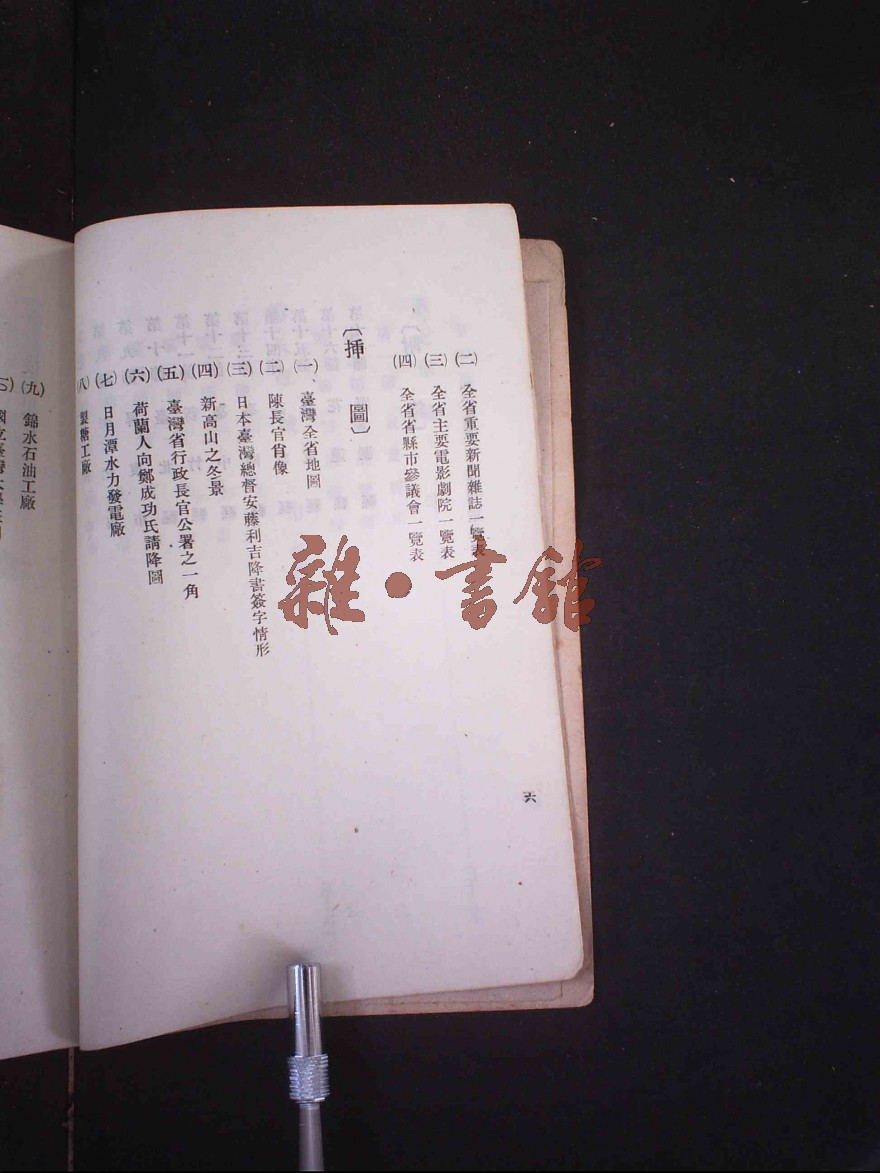 (二) 全省重要新聞雜誌一覽表
(三) 全省主要電影劇院一覽表
(四) 全省省縣市參議會一覽表
〔插 圖〕
(一)、臺灣全省地圖
(二) 陳長官肖像
(三) 日本臺灣總督安藤利吉降書簽字情形
(四) 新高山之冬景
(五) 臺灣省行政長官公署之一角
(六) 荷蘭人向鄭成功氏請降圖
(七) 日月潭水力發電廠
(八) 製糖工廠
(九) 錦水石油工廠
六
雜·書館